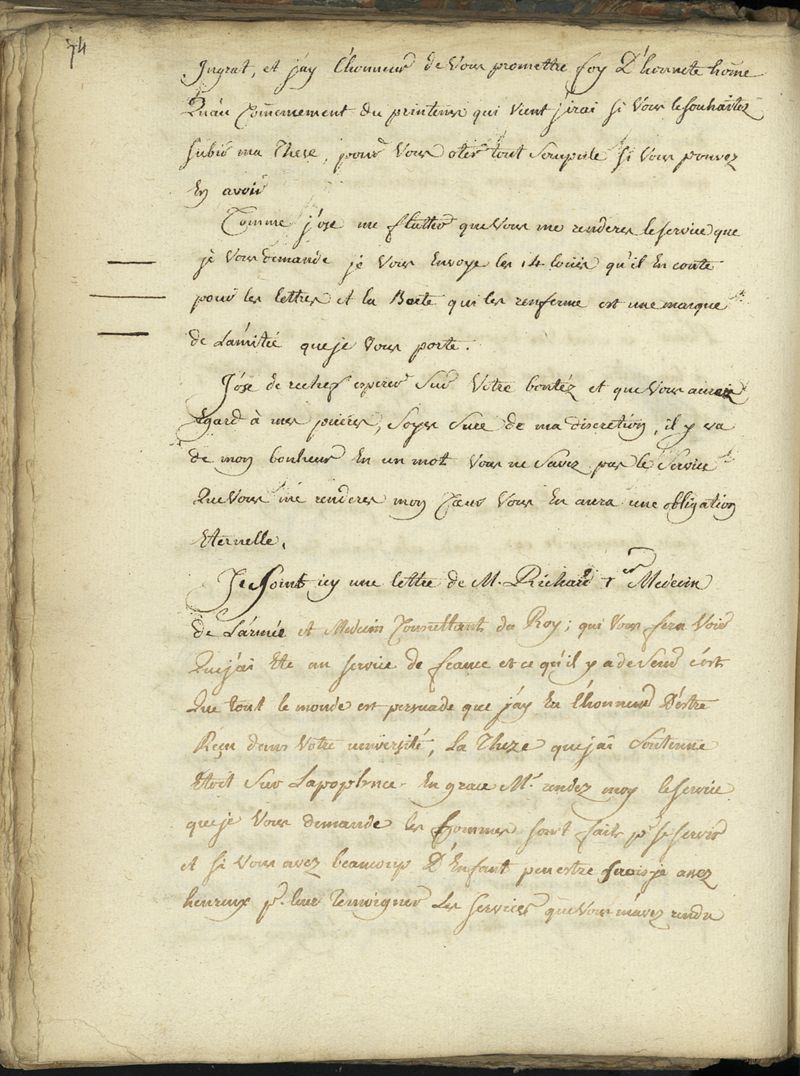 74
Ingrat, et j'ay l'honneur de vous promettre foy D'honnete home
Qu'au Comencement du printems qui vient j'irai si vous le souhaitez
subir ma These, pour vous oter tout scrupule si vous pouvez
En avoir
Comme j'ose me flatter que vous me renderes le service que
je vous demande je vous Envoye les 14 louis qu'il En coute
pour les lettres et la Boete qui les renferme est une marque
de L'amitié que je vous porte.
J'ose de rechef esperer sur votre bontéz et que vous aurez
Egard à mes prieres, soyes sure de ma discretion, il y va
de mon bonheur En un mot vous ne savez pas le service
Que vous me renderes mon Cœur vous En aura une obligation
Eternelle.
Je Joint icy une lettre de M. Richard 1er Medecin
de L'armée et Medecin Consultant du Roy; qui vous fera voir
Que j'ai Eté au service de france et ce qu'il y a de seur c'est
Que tout le monde est persuade que j'ay Eu l'honneur D'estre
Reçu dans votre université, La Theze que j'ai soutenue
Etoit sur Lapoplexie. En grace Mr. rendez moy le service
que je vous demande les hommes sont faits pr. se servir
et si vous avez beaucoup D'Enfant peu estre serois je assez
heureux pr. leur Temoigner Les services que vous m'avez rendu